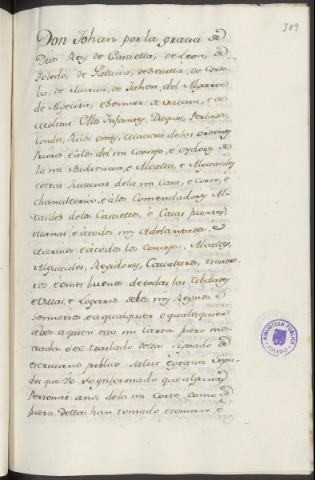 309
Don Johan por la gracia de
Dios Rey de Castiella, de Leon, de
Toledo, de Gallicia, de Sevilla, de Cordo-
ba, de Murcia, de Jahen, del Algarve
de Algecira, e Sennor de Vizcaya, e de
Molina. A los Infantes, Duques, Perlados,
Condes, Ricos omes, Maestres de las ordenes
Priores, e a los del mi Consejo, e oydores de
la mi Audiencia, e Alcalles, e Alguaciles
e otras Justicias de la mi Casa, e Corte, e
Chancilleria, e a los Comendadores Al-
caydes de los Castiellos, e Casas fuertes,
e llanas, e a todos los Adelantados, e
Merinos e a todos los Concejos, Alcalles,
Alguaciles, Regidores, Cavalleros, escude-
ros e omes buenos de todas las Cibdades
e Villas, e Logares de los mis Regnos, e
Sennorios, e a qualquier o qualesquier
de vos a quien esta mi Carta fuere mos-
trada o el traslado della signado de
escrivano publico salut e gracia sepa-
des que Yo so ynformado que algunas
Personas ansi de la mi Corte como de
fuera della han tomado e toman, e
BIBLIOTECA PUBLICA
TOLEDO